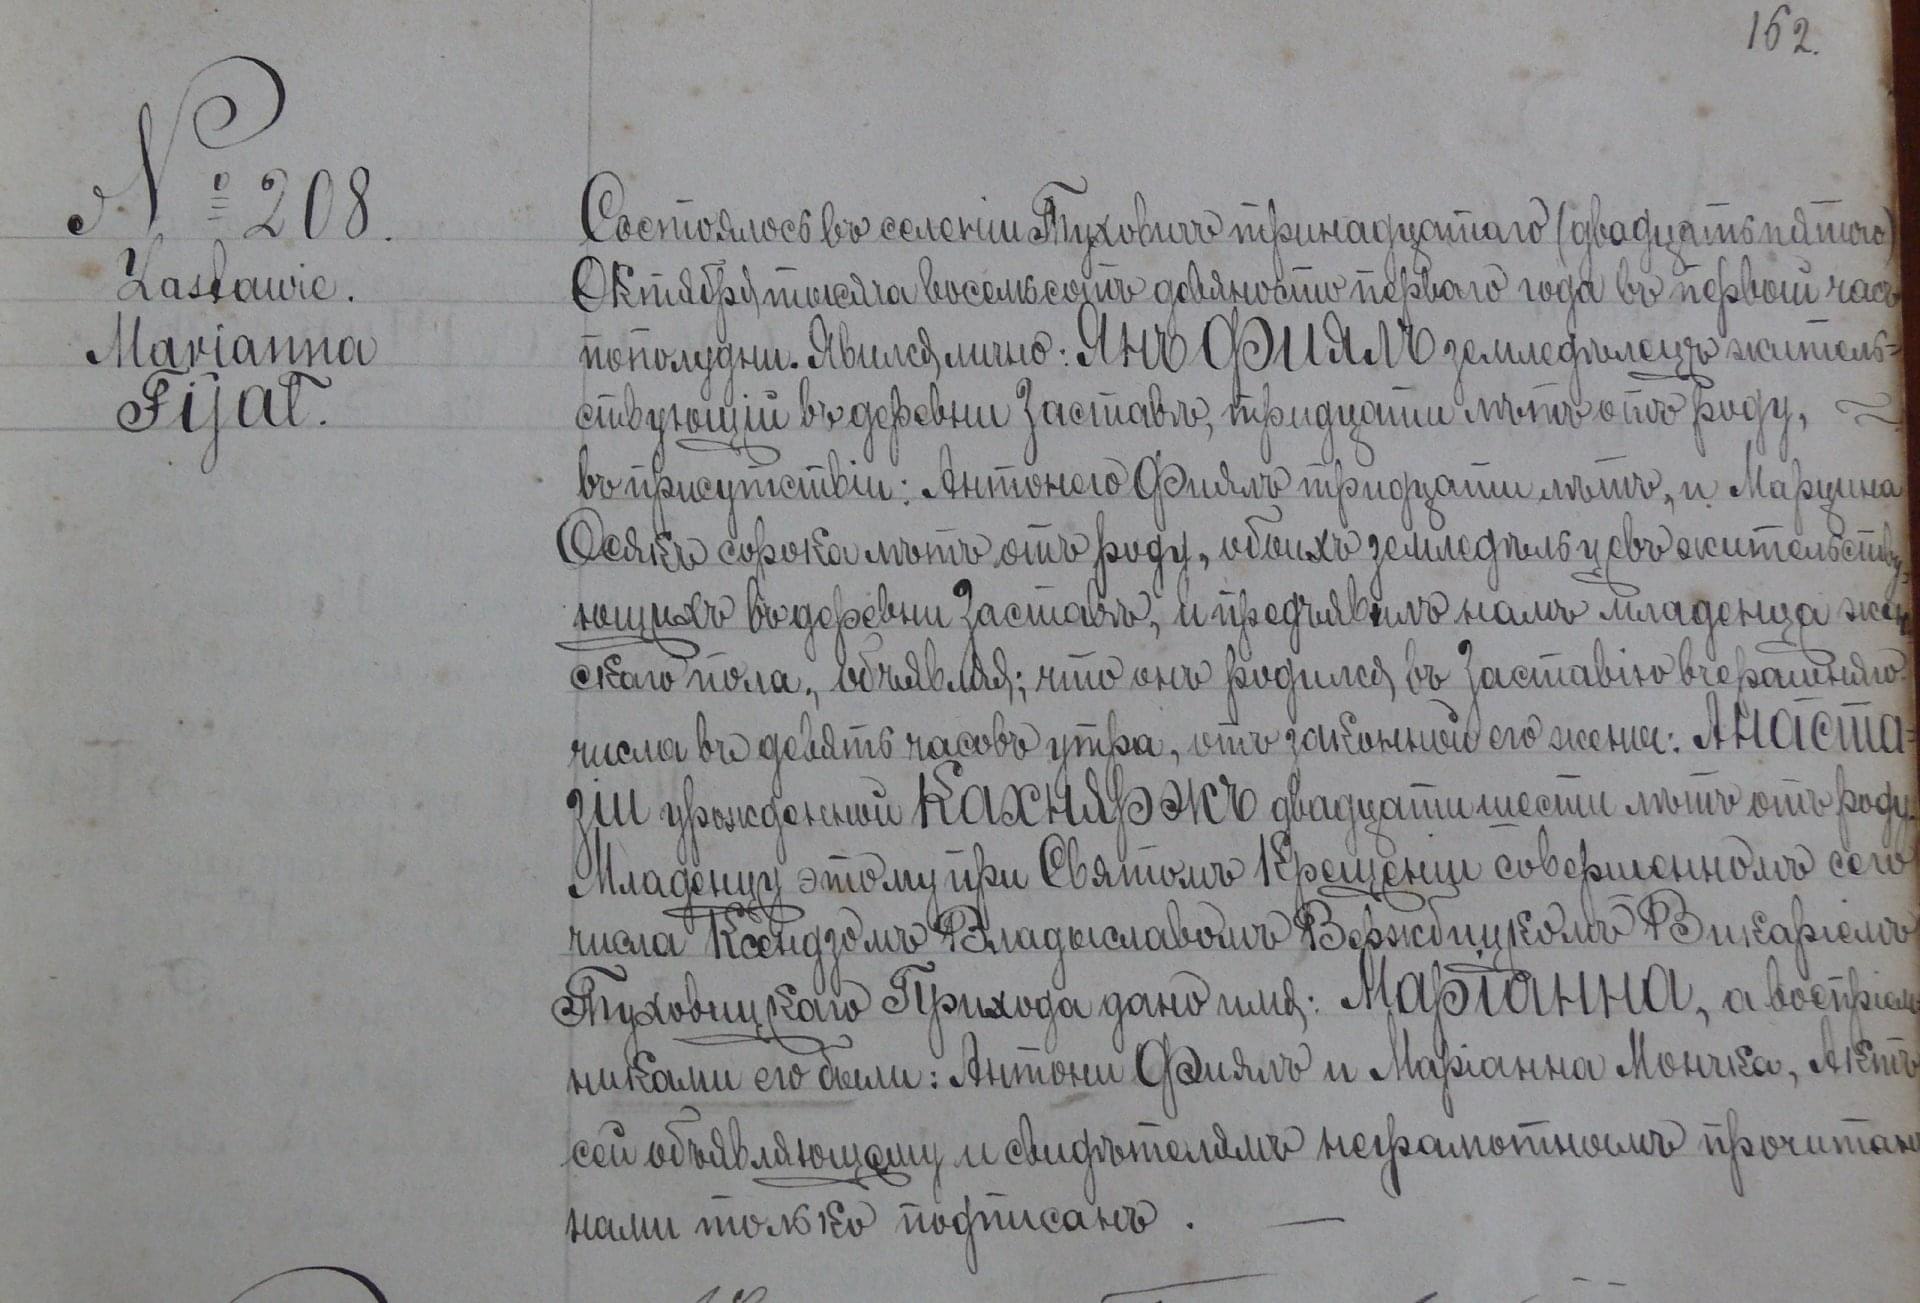 162.
№ 208.
Zastawie.
Marianna
Fijał.
Состоялось въ селеніи Туховичъ тринадцатаго (двадцать пятого)
Октября тысяча восемьсотъ девяносто перваго года въ первой часъ
пополудни. Явился лично: Янъ Фиялъ земледѣлецъ житель=
ствующій въ деревни Заставѣ, тридцати лѣтъ отъ роду,
въ присутствіи: Антонего Фиялъ тридцати лѣтъ, и Марцина
Осякъ сорока лѣтъ отъ роду, обоихъ земледѣльцевъ жительству,
ющихъ въ деревни Заставѣ, и предъявилъ намъ младенца жен
скаго пола, объявляя; что онъ родился въ Заставію вчерашняго
числа въ девять часовъ утра, отъ законной его жены: Анаста=
зіи урожденной Кахнярэжъ двадцати шести лѣтъ отъ роду.
Младенцу этому при Святомъ Крещеніи совершенномъ сего
числа Ксендзомъ Владыславомъ Вержбицкомъ Викаріемъ
Туховицкаго Прихода дано имя: Маріанна, а воспріем
никами его были: Антони Фиялъ и Маріанна Мончка, Актъ
сей объявляющему и свидѣтелямъ неграмотнымъ прочитанъ
нами только подписанъ.